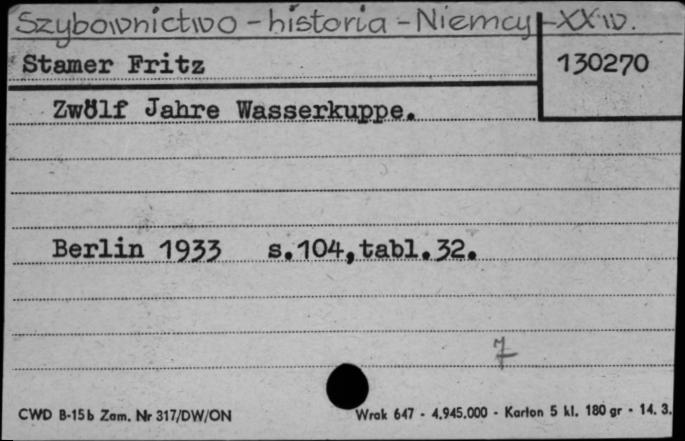 Szybownictwo - historia - Niemcy - XX w.
Stamer Fritz 130270
Zwölf Jahre Wasserkuppe.
Berlin 1933 s.104,tabl.32.
7
CWD B-15b Zam. Nr 317/DW/ON Wrak 647 - 4.945.000 - Karton 5 kl. 180 gr - 14. 3.